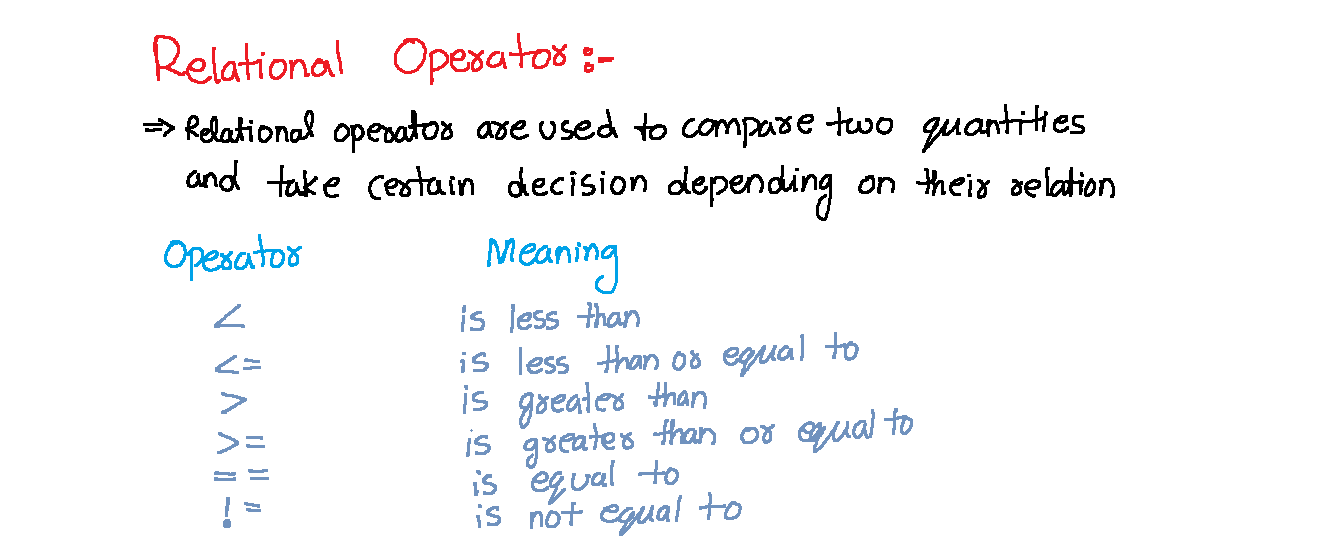 Relational Operator :-
⇒ Relational operator are used to compare two quantities
and take certain decision depending on their relation
Operator Meaning
< is less than
<= is less than or equal to
> is greater than
>= is greater than or equal to
== is equal to
!= is not equal to